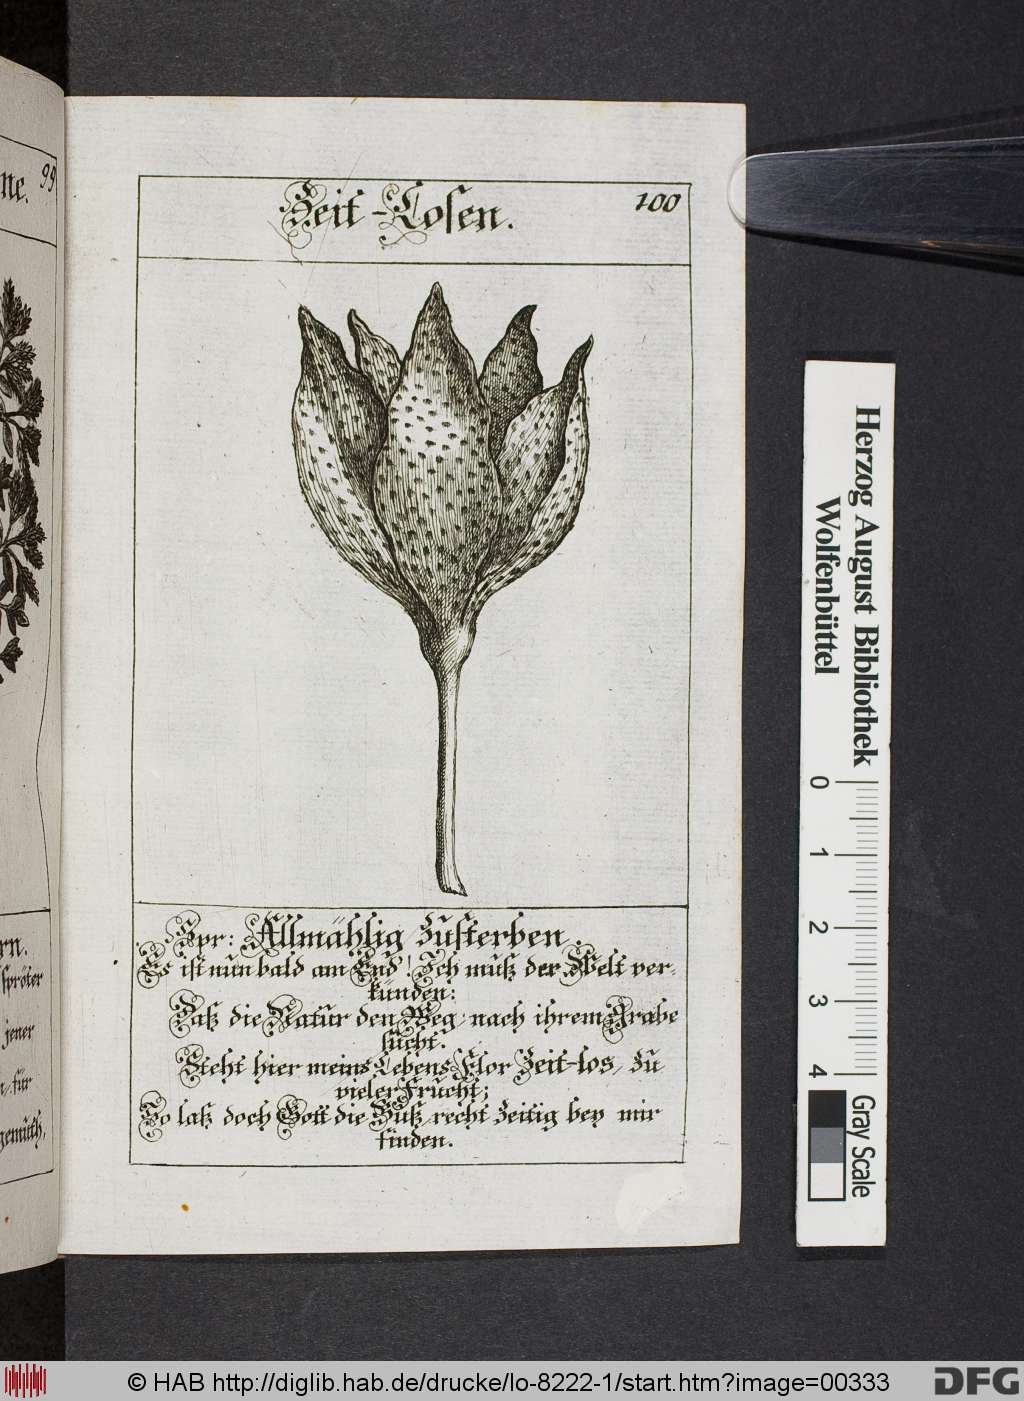 ne. 99
rn.
spröter
jener
für
gemüth,
Zeit-Losen. 100
Spr: Allmählig zusterben.
Es ist nun bald am End'! Ich muß der Welt ver-
künden:
Daß die Natur den Weg nach ihrem Grabe
sucht.
Steht hier meins Lebens Flor Zeit-los, zu
vieler Frucht;
So laß doch Gott die Buß recht zeitig bey mir
finden.
Herzog August Bibliothek
Wolfenbüttel
0 1 2 3 4
Gray Scale
© HAB http://diglib.hab.de/drucke/lo-8222-1/start.htm?image=00333
DFG